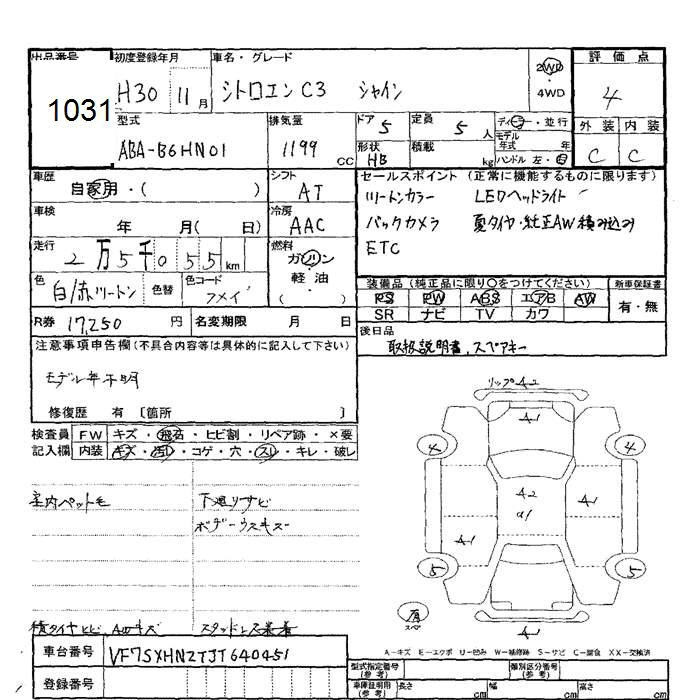 出品番号 初度登録年月 車名・グレード 評価点
1031 H30 11月 シトロエンC3 シャイン 2WD・4WD 4
型式 排気量 ドア 5 定員 5人 ディーラー・並行 外装 内装
ABA-B6HN01 1199cc 形状 HB 積載 kg モデル年式 年 ハンドル 左・右 C C
車歴 自家用・( ) シフト AT セールスポイント (正常に機能するものに限ります)
車検 年 月( 日) 冷房 AAC ツートンカラー LEDヘッドライト
走行 2万5千055km 燃料 ガソリン バックカメラ 夏タイヤ・純正AW積み込み
軽油 ETC
色 白/赤ツートン 色替 色コード ( )
装備品 (純正品に限り〇をつけてください) 新車保証書
PS PW ABS エアB AW 有・無
R券 17,250円 名変期限 月 日 SR ナビ TV カワ
注意事項申告欄(不具合内容等は具体的に記入して下さい) 後日品
取扱説明書、スペアキー
モデル年不明
修復歴 有 〔箇所 〕
リップA2
検査員 FW キズ・飛石・ヒビ割・リペア跡・×要
記入欄 内装 キズ・汚レ・コゲ・穴・スレ・キレ・破レ
A1
4 4
室内ペット毛 下廻りサビ
ボデーウスキズ
A2
a1
A1
A1
5 5
A1
スペア
積タイヤヒビ AWキズ スタッドレス装着
A-キズ E-エクボ U-凹み W-補修跡 S-サビ C-腐食 XX-交換済
車台番号 VF7SXHNZTJT640451
型式指定番号(参考) 類別区分番号(参考)
登録番号 車庫証明用(参考) 長さ cm 幅 cm 高さ cm